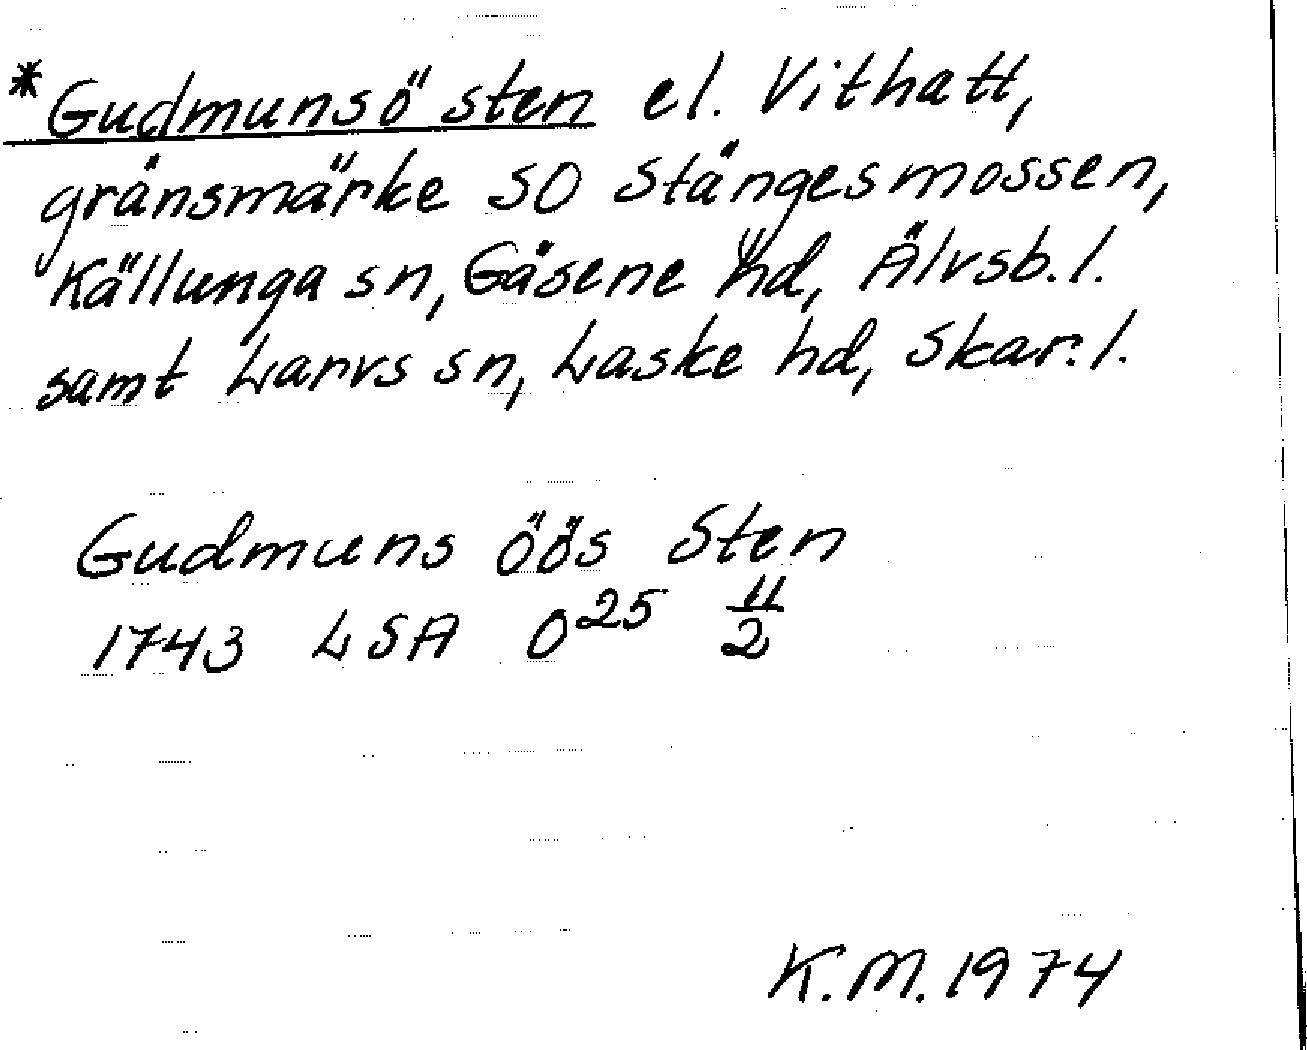 *Gudmunsö sten el. Vithatt,
gränsmärke SO Stängesmossen,
Källunga sn, Gäsene hd, Älvsb. l.
samt Larvs sn, Laske hd, Skar. l.
Gudmuns öös Sten
1743 LSA O25 11/2
K.M. 1974